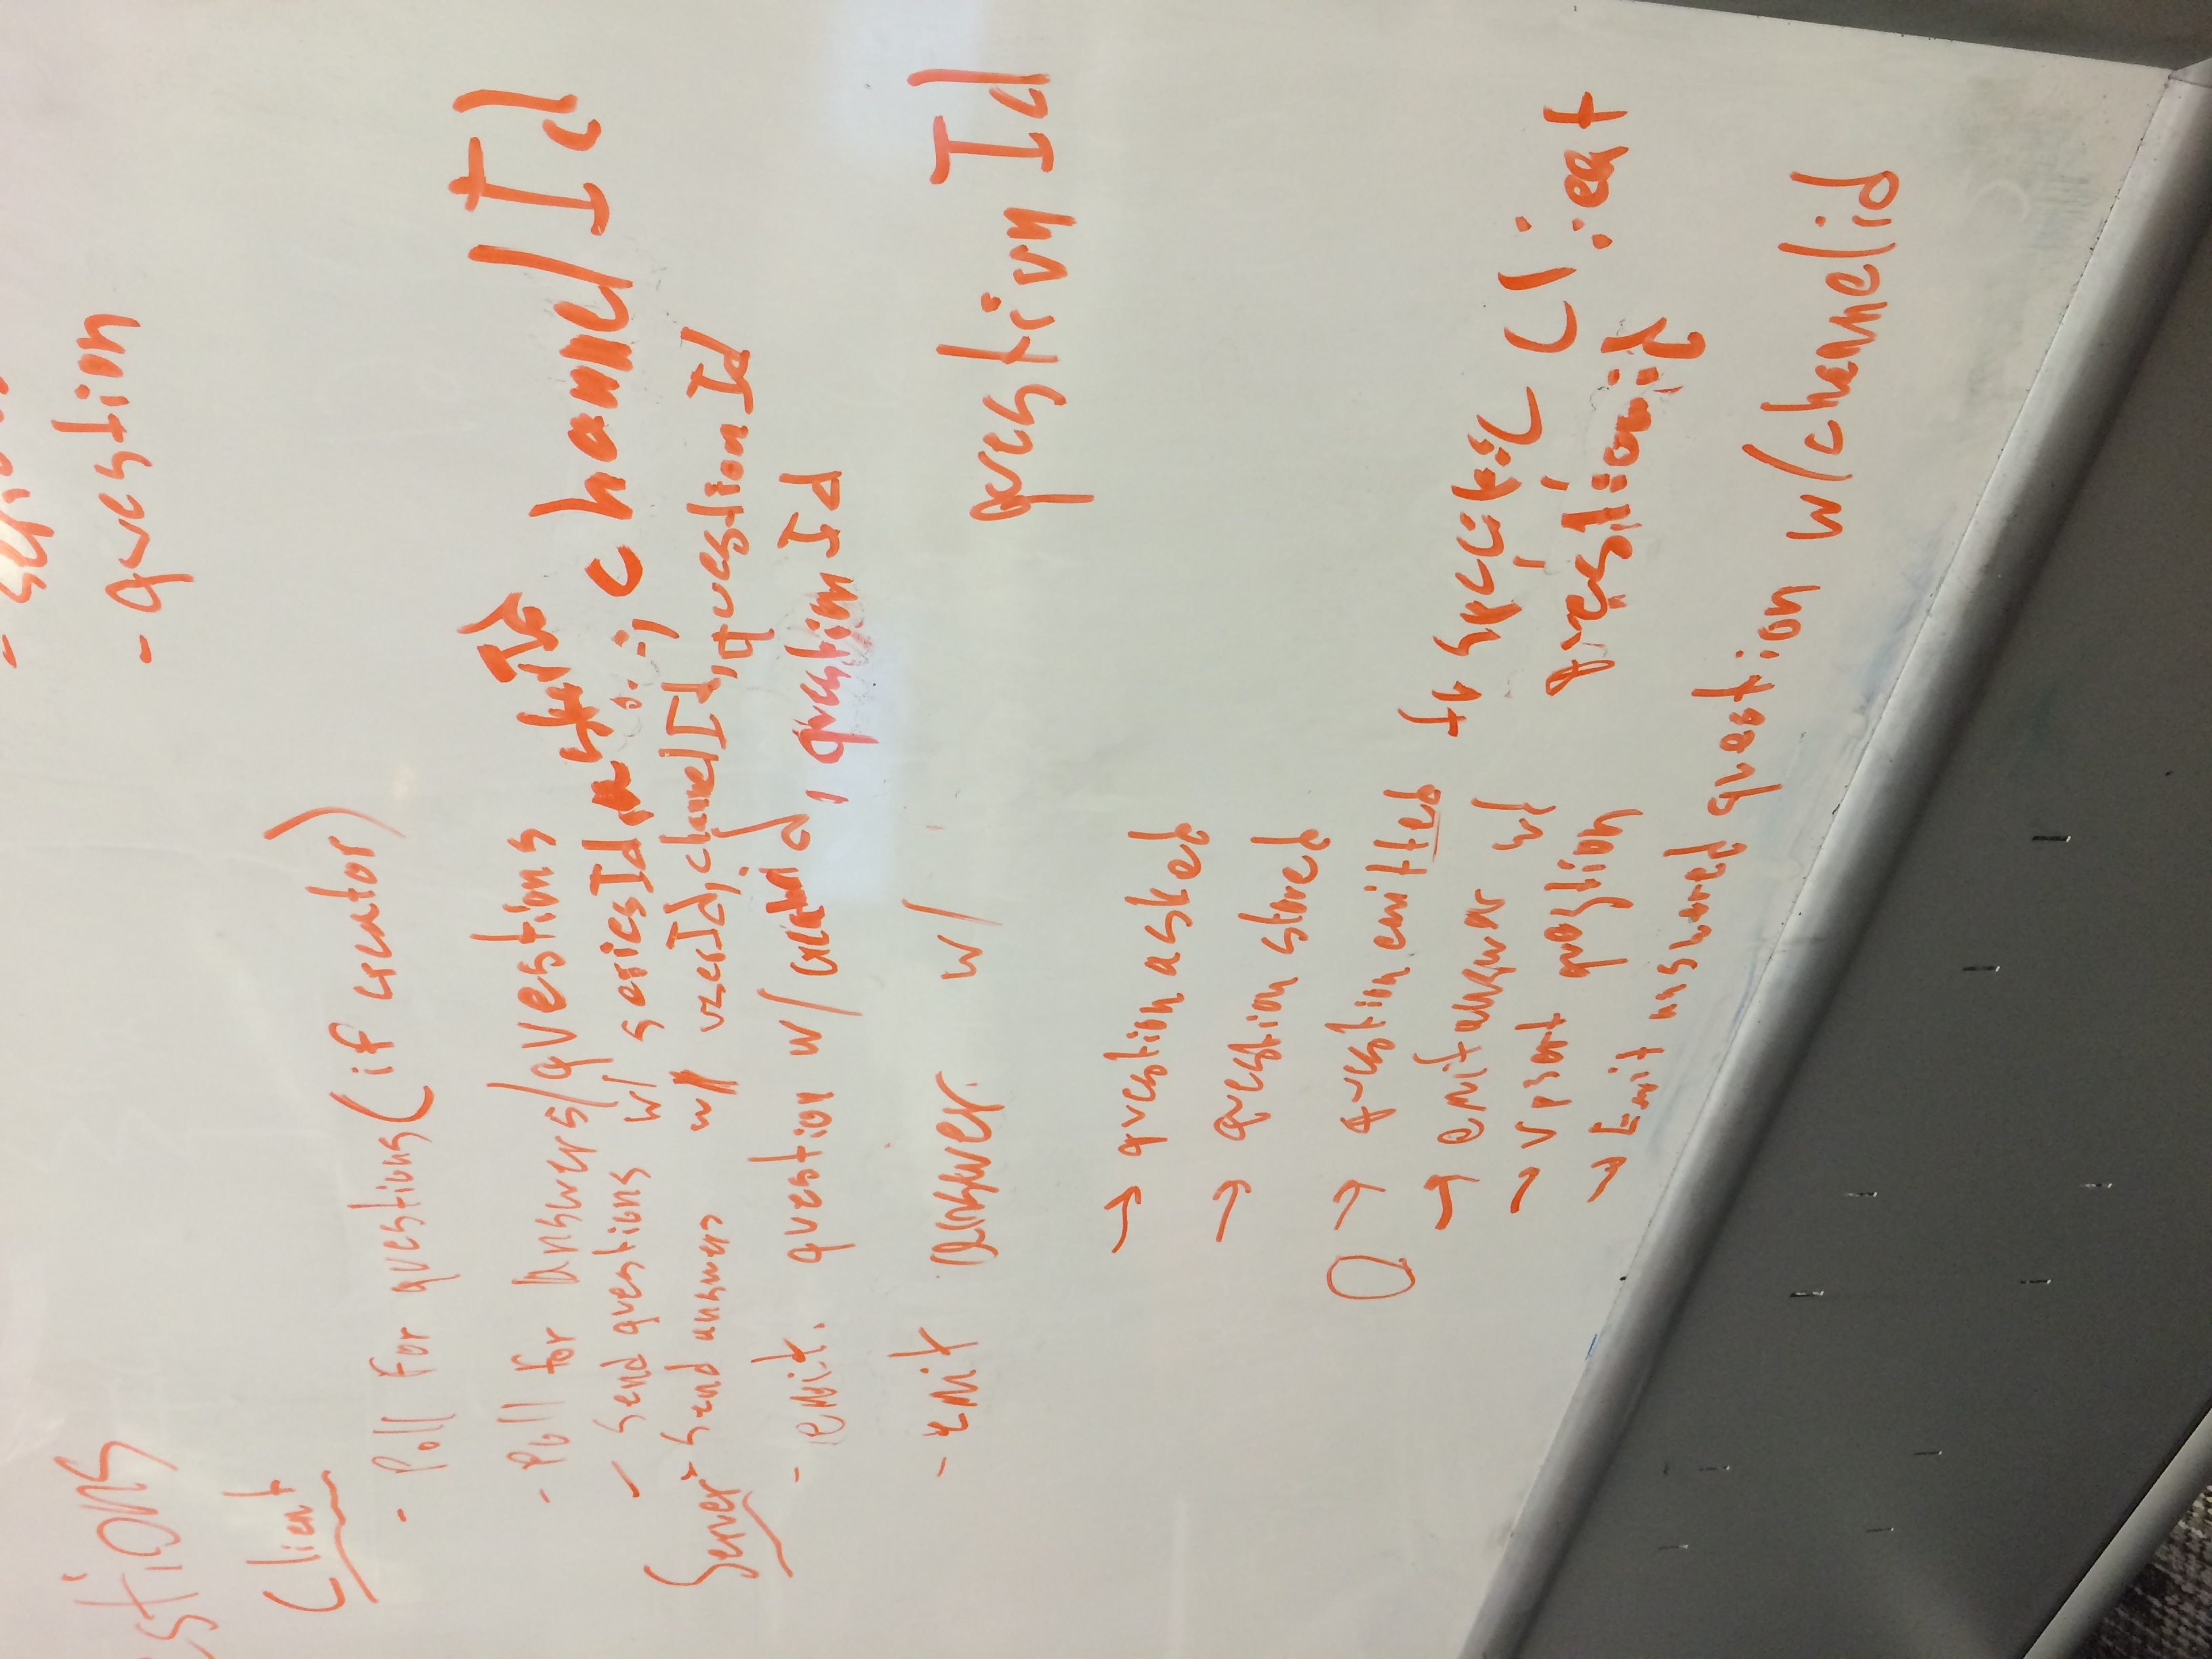 - question
Client
- Poll For questions (if creator)
- Poll for answers/questions
- Send questions w/ seriesId, askerId, channelId
Server
- Send answers w/ userId, channelId, questionId
- emit question w/ , questionId
- emit answer w/ questionId
→ question asked
→ question stored
→ question emitted to specific client
→ emit answer w/ questionid
→ Upsert question
→ Emit answered question w/channelid